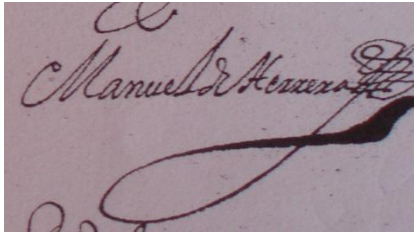 Manuel de Herrera